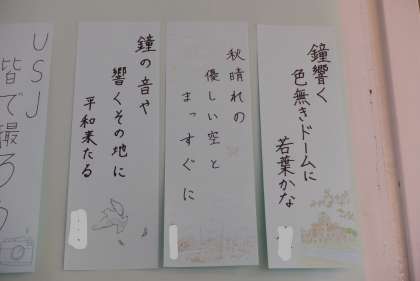 鐘響く
色無きドームに
若葉かな
秋晴れの
優しい空と
まっすぐに
鐘の音や
響くその地に
平和来たる
USJ
皆で撮ろう